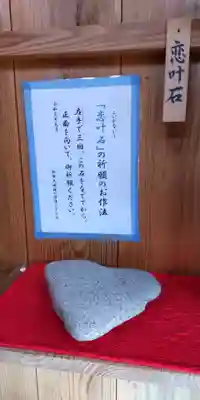 恋叶石
こいかないし
「恋叶石」の祈願のお作法
左手で三回、この石をなでてから、
正面を向いて、御祈願ください。